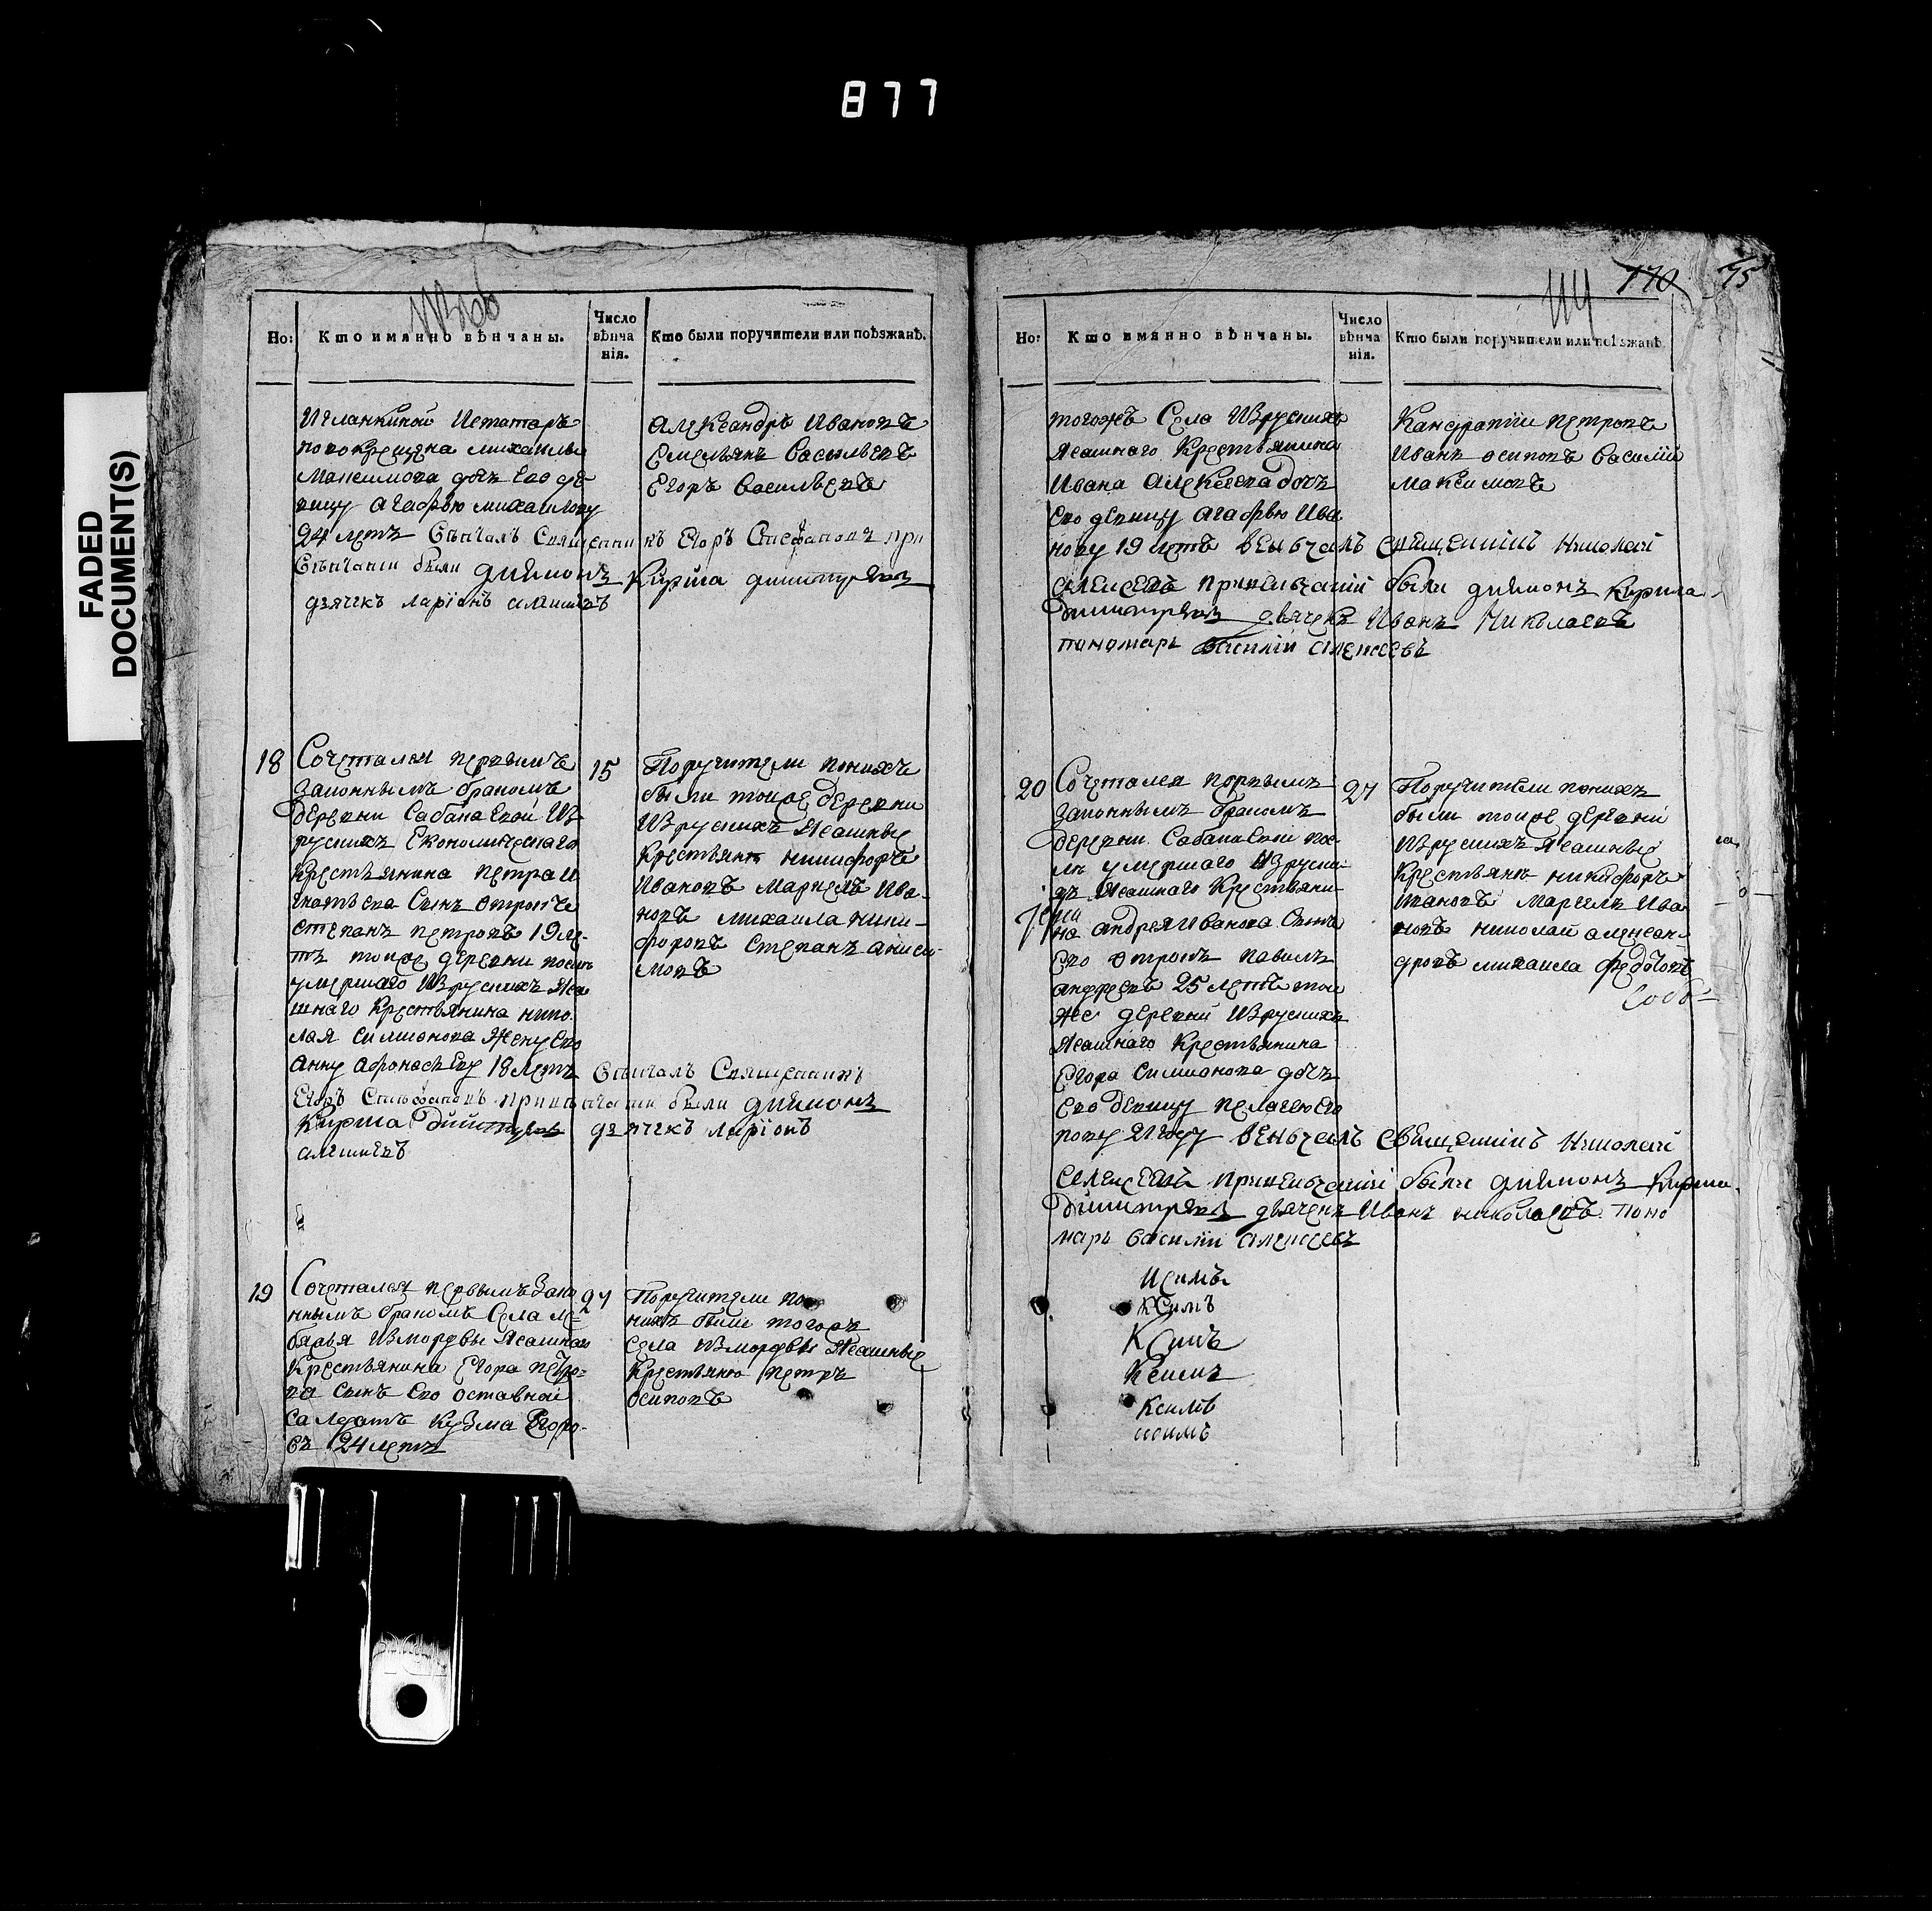 877
FADED
DOCUMENT(S)
Но:
Кто имянно вѣнчаны.
Число вѣнча нія.
Кто были поручители или поѣзжанѣ.
новокрещена михаилы
Максимова дочь Ево де
вицу Агафью михаилову
24 летъ Свѣнчалъ Священникъ Егоръ Стефановъ при
Свѣнчании были диямонъ Кирила димитриевъ
дзячекъ ларіонъ
Александръ Ивановъ
Емельянъ Васильевъ
Егоръ Васильевъ
18
Сочетался первымъ
законнымъ бракомъ
деревни Сабанаевой Из
рускихъ Економическаго
Крестьянина Петра И
гнатьева Сынъ отрокъ
степанъ петровъ 19 ле
тъ тойже деревни после
умершаго Изрускихъ Яса
шнаго Крестьянина нико
лая Симионова Жену Ево
Анну Афонасьеву 18 летъ Свѣнчалъ Священникъ
Егоръ Стефановъ при вѣнчании были диямонъ
Кирила Димитриевъ дзячекъ ларіонъ
15
Поручители поних
были тойже деревни
Изрускихъ Ясашные
Крестьяня никифоръ
Ивановъ Маркелъ Ива
новъ михаила ники
форовъ Степанъ аниси
мовъ
19
Сочетался первымъ Зако
ннымъ бракомъ Села ле
бяжья Измордвы Ясашнаго
Крестьянина Егора петро
ва сынъ Ево оставной
Салдатъ Кузма Егоро
въ 24 летъ
27
Поручители по
нихъ были тогожъ
села измордвы Ясашные
Крестьяня Петръ
Осиповъ
170 75
Но:
Кто имянно вѣнчаны.
Число вѣнча нія.
Кто были поручители или поѣзжанѣ
тогожъ Села Изрускихъ
Ясашнаго Крестьянина
Ивана Алексеева дочь
Ево девицу Агафью Ива
нову 19 летъ веньчалъ священникъ Николай
Алексеевъ при веньчаніи были диямонъ Кирила
Димитриевъ дьячекъ Иванъ Николаевъ
пономарь Василій Алексеевъ
Кандратий Петровъ
Иванъ осиповъ василий
максимовъ
20
Сочетался первымъ
законнымъ бракомъ
деревни Сабанаевой пос
ле умершаго Изруски
хъ Ясашнаго Крестьяни
на андрея Иванова Сынъ
Ево отрокъ павилъ
андреевъ 25 летъ той
же деревни Изрускихъ
Ясашнаго Крестьянина
Егора Симионова дочь
Ево девицу пелагею Его
рову веньчалъ священникъ Николай
Алексеевъ при веньчаніи были диямонъ Кирила
Димитриевъ дьячекъ Иванъ николаевъ поно
марь Василий Алексеевъ
27
Поручители понихъ
были тойже деревни
Изрускихъ Ясашные
Крестьяня никифоръ
Ивановъ Маркелъ Ива
новъ николай александ
дровъ михаила федотовъ
Ксимъ
Ксимъ
Ксимъ
Ксимъ